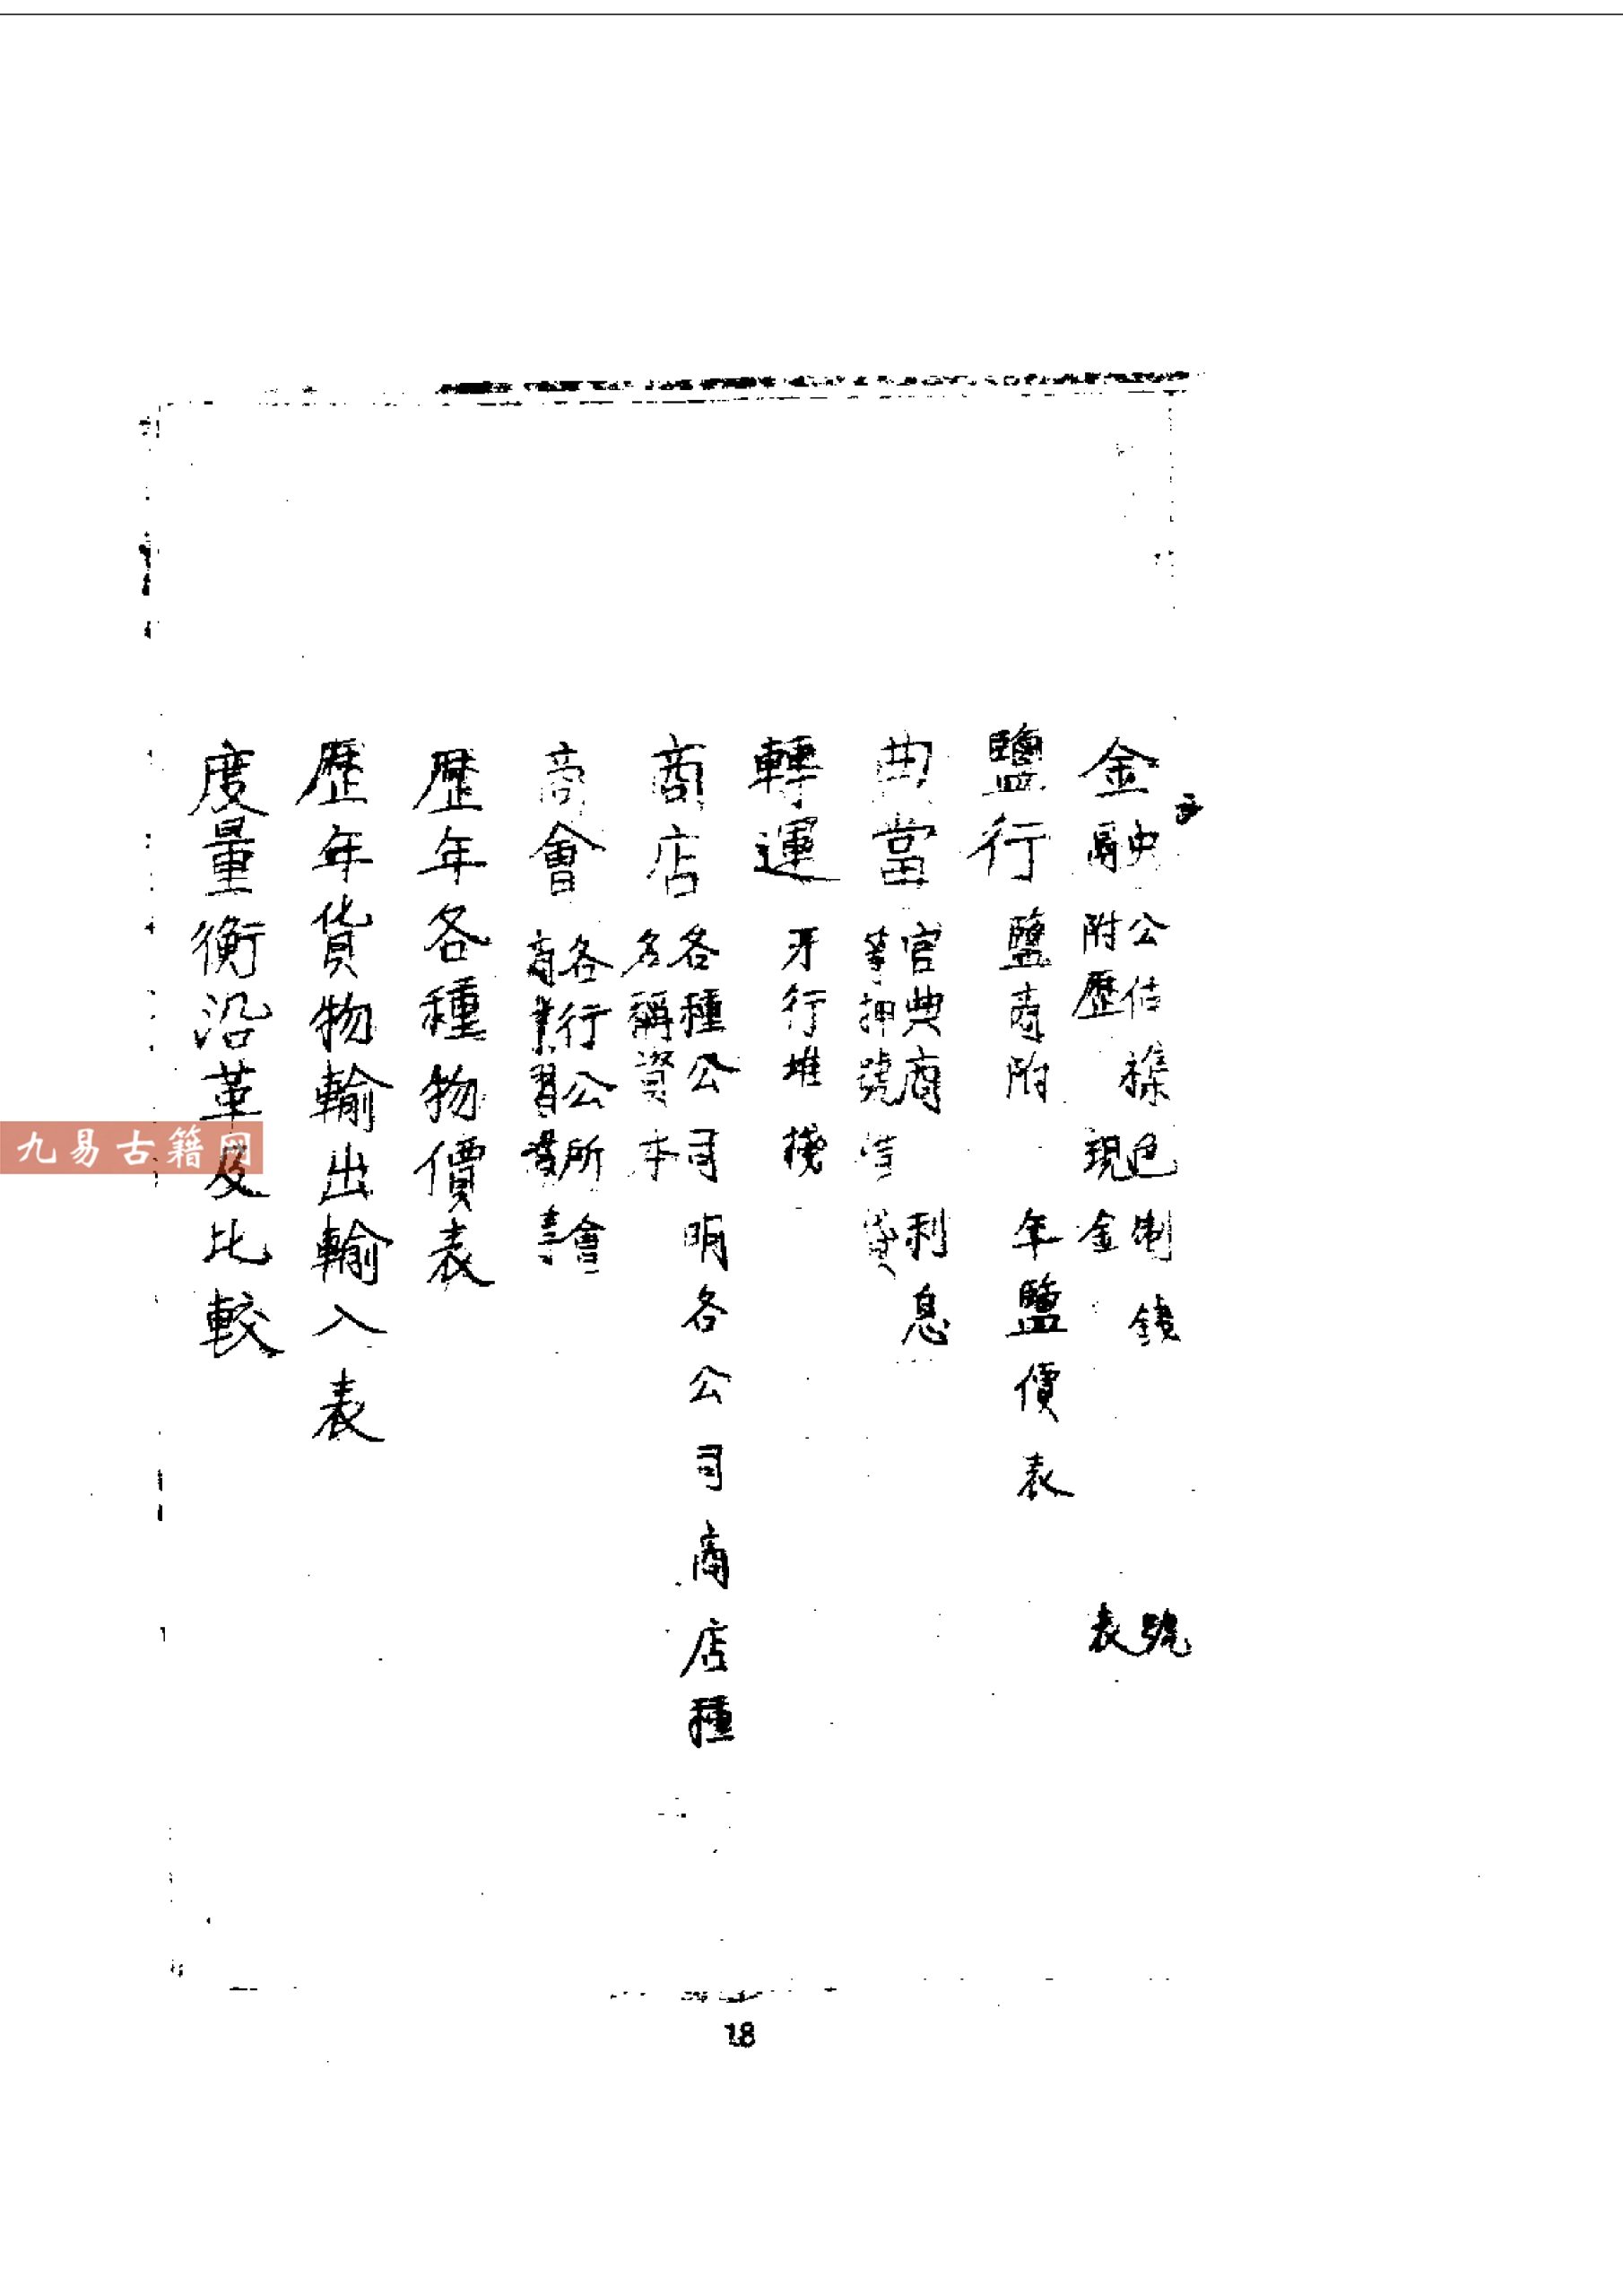 金融 公估 色制錢 號
附歷 現金 表
鹽行 鹽商附 年鹽價表
典當 官典商 利息
等押號借貸
轉運 牙行堆棧
商店 各種公司 明各公司商店種
名稱資本
商會 各行公所會
商業習慣等
歷年各種物價表
歷年貨物輸出輸入表
度量衡沿革及比較
九易古籍网
18